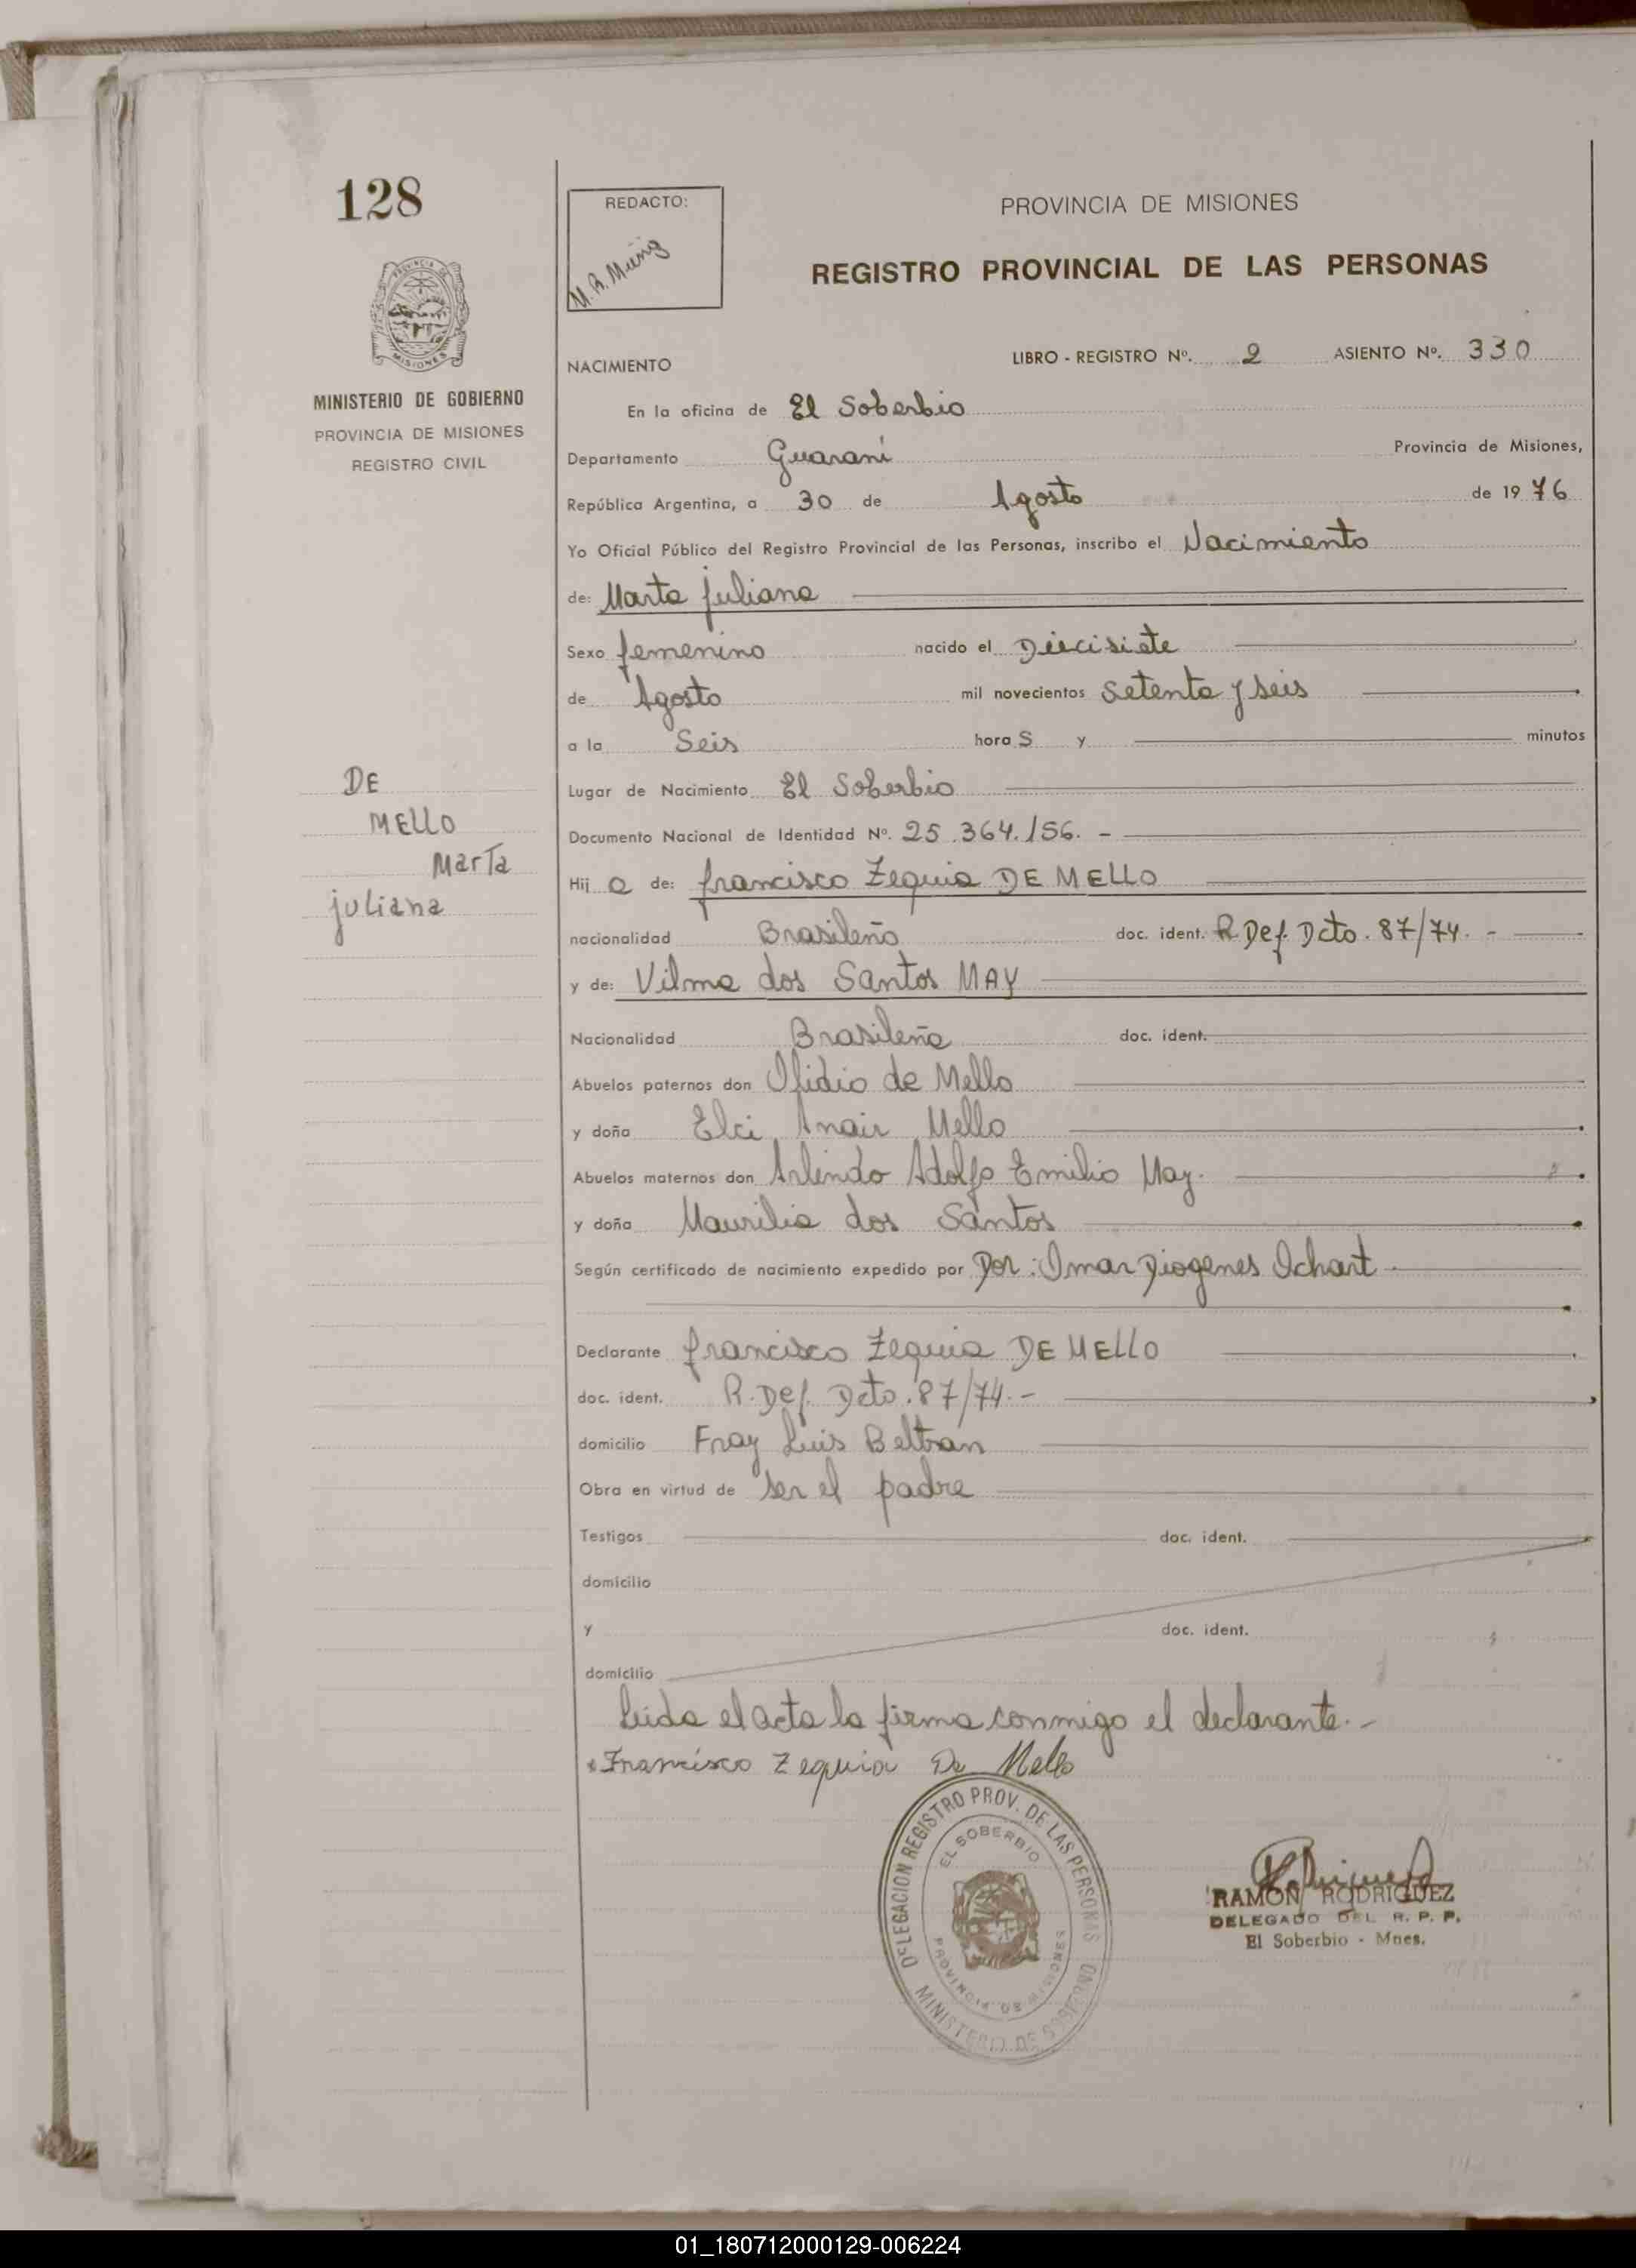 128
REDACTO:
PROVINCIA DE MISIONES
REGISTRO PROVINCIAL DE LAS PERSONAS
MINISTERIO DE GOBIERNO
PROVINCIA DE MISIONES
REGISTRO CIVIL
NACIMIENTO LIBRO - REGISTRO Nº. 2 ASIENTO Nº. 330
En la oficina de El Soberbio
Departamento Guaraní Provincia de Misiones,
República Argentina, a 30 de Agosto de 1976
Yo Oficial Público del Registro Provincial de las Personas, inscribo el Nacimiento
de: Marta Juliana
Sexo femenino nacido el Diecisiete
de Agosto mil novecientos setenta y seis
a la Seis hora S y minutos
DE
MELLO
Marta
juliana
Lugar de Nacimiento El Soberbio
Documento Nacional de Identidad Nº. 25.364.156. -
Hij a de: francisco Zequia DE MELLO
nacionalidad Brasileño doc. ident. R Def. Dcto. 87/74. -
y de: Vilma dos Santos MAY
Nacionalidad Brasileña doc. ident.
Abuelos paternos don Ofidio de Mello
y doña Elci Anair Mello
Abuelos maternos don Arlindo Adolfo Emilio May.
y doña Maurilia dos Santos
Según certificado de nacimiento expedido por Dor: Omar Diogenes Ochart
Declarante francisco Zequia DE MELLO
doc. ident. R. Def. Dcto. 87/74. -
domicilio Fray Luis Beltran
Obra en virtud de ser el padre
Testigos doc. ident.
domicilio
y doc. ident.
domicilio
Leida el acta la firma conmigo el declarante. -
Francisco Zequia De Mello
DELEGACION REGISTRO PROV. DE LAS PERSONAS
EL SOBERBIO
PROVINCIA DE MISIONES
MINISTERIO DE GOBIERNO
RAMON RODRIGUEZ
DELEGADO DEL R. P. P.
El Soberbio - Mnes.
01_180712000129-006224